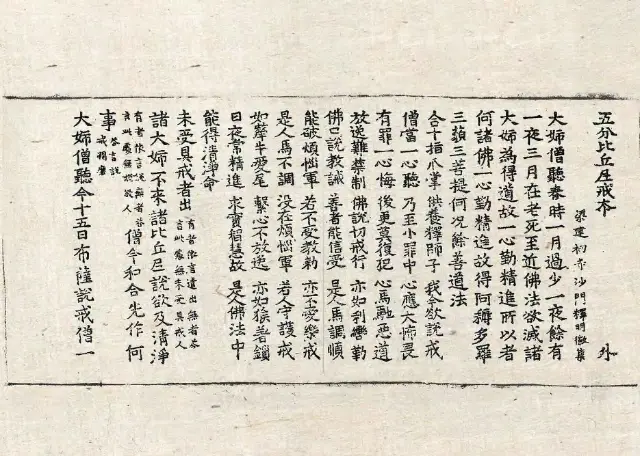 五分比丘尼戒本 外
梁建初寺沙門釋明徽集
大姉僧聽春時一月過少一夜餘有
一夜三月在老死至近佛法欲滅諸
大姉為得道故一心勤精進所以者
何諸佛一心勤精進故得阿耨多羅
三藐三菩提何況餘善道法
合十指爪掌 供養釋師子 我今欲說戒
僧當一心聽 乃至小罪中 心應大怖畏
有罪一心悔 後更莫復犯 心馬馳惡道
放逸難禁制 佛說切戒行 亦如利轡勒
佛口說教誡 善者能信受 是人馬調順
能破煩惱軍 若不受教勅 亦不愛樂戒
是人馬不調 沒在煩惱軍 若人守護戒
如犛牛愛尾 繫心不放逸 亦如猴著鎖
日夜常精進 求實智慧故 是人佛法中
能得清淨命
未受具戒者出 有者依言遣出無者答言此處無未受具戒人
諸大姉不來諸比丘尼說欲及清淨
有者依言說無者答言此處無說欲人 僧今和合先作何
事 答言說戒羯磨
大姉僧聽今十五日布薩說戒僧一